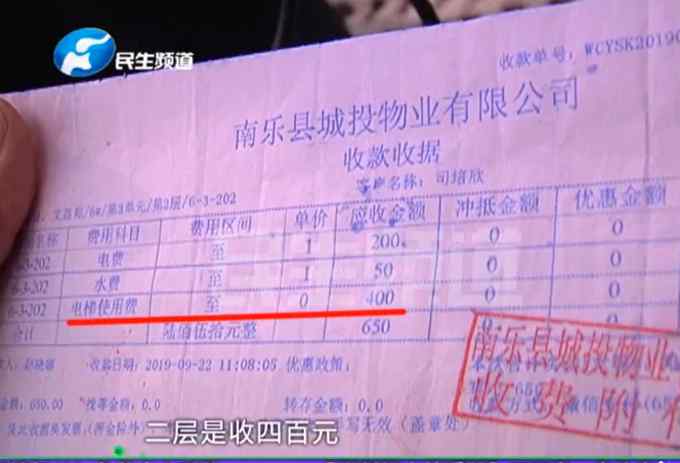 民生频道
收款单号：WCYSK20190
南乐县城投物业有限公司
收款收据
客户名称：司培欣
/6#/第3单元/第2层/6-3-202
名称 费用科目 费用区间 单价 应收金额 冲抵金额 优惠金额
-3-202 电费 至 1 200 0 0
6-3-202 水费 至 1 50 0 0
6-3-202 电梯使用费 至 0 400 0 0
合计 陆佰伍拾元整 650
收款日期：2019-09-22 11:08:05 优惠政策：
金额：650.00 找零金额：0.0 转存金额：0.0
南乐县城投物业
收费附
二层是收四百元
写无效（盖章处）